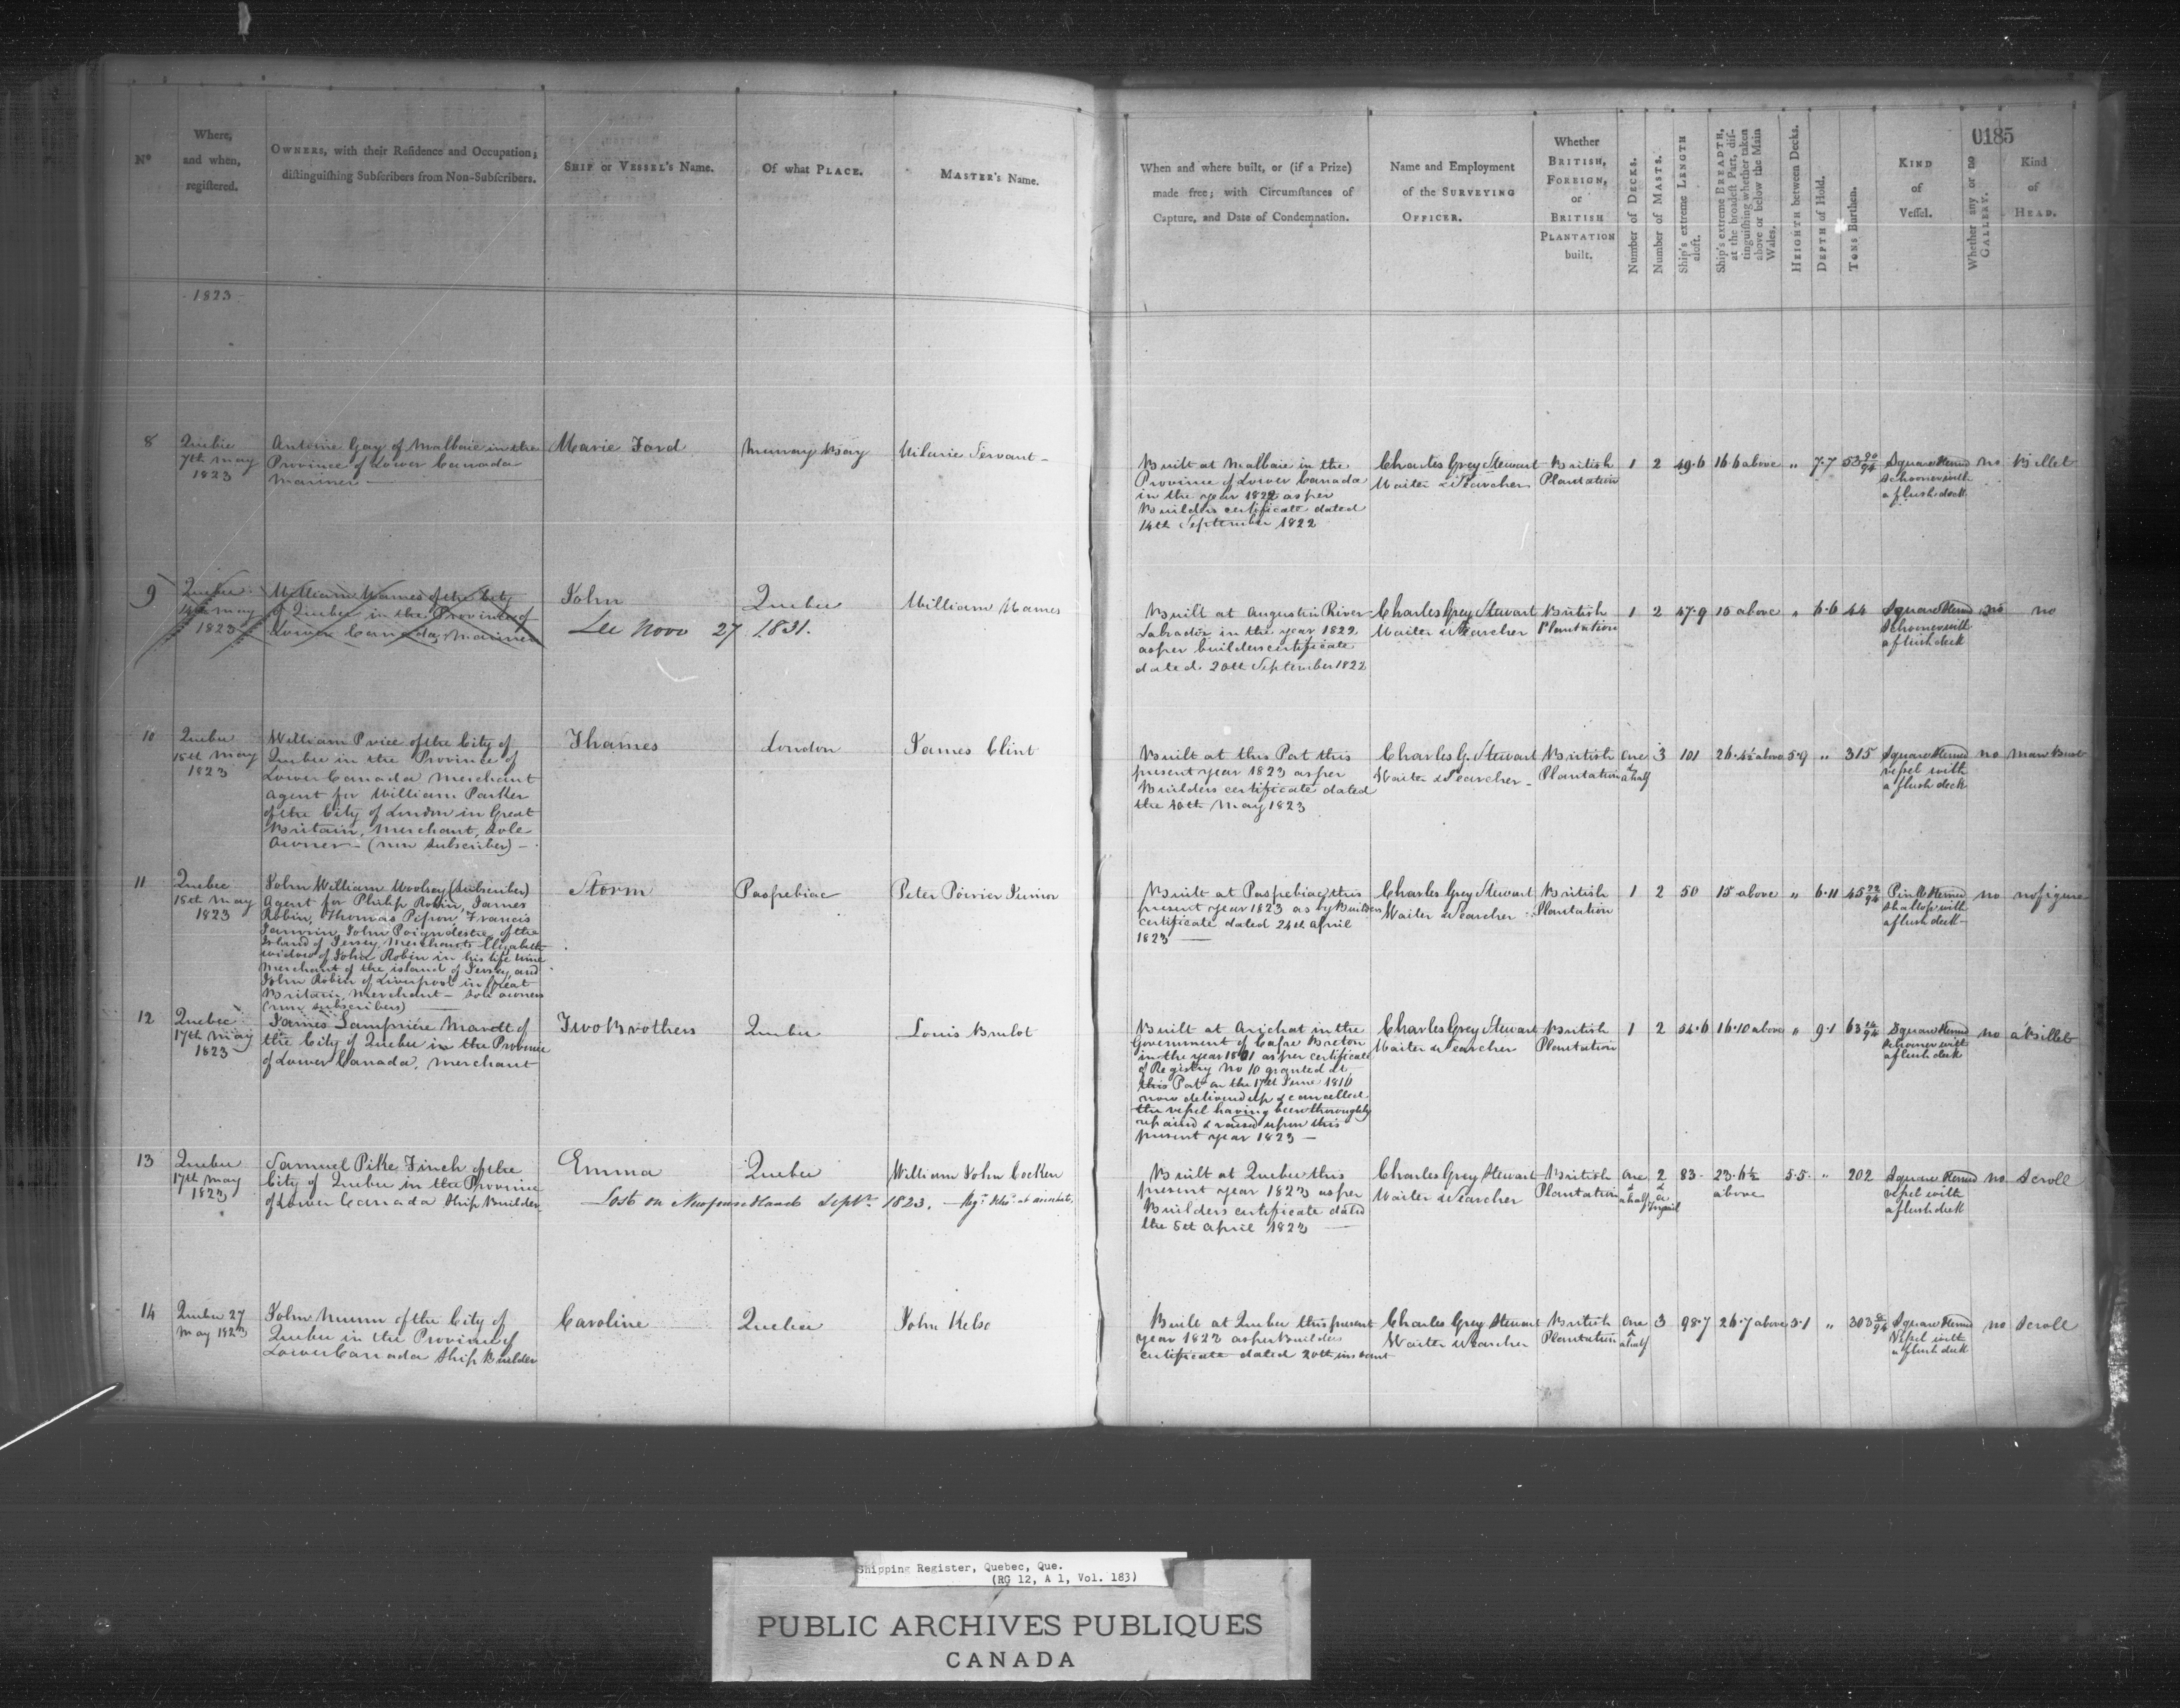 0185
Nº
Where,
and when,
registered.
OWNERS, with their Residence and Occupation;
distinguishing Subscribers from Non-Subscribers.
SHIP or VESSEL's Name.
Of what PLACE.
MASTER's Name.
When and where built, or (if a Prize)
made free; with Circumstances of
Capture, and Date of Condemnation.
Name and Employment
of the SURVEYING
OFFICER.
Whether
BRITISH,
FOREIGN,
or
BRITISH
PLANTATION
built.
Number of DECKS.
Number of MASTS.
Ship's extreme LENGTH
aloft.
Ship's extreme BREADTH,
at the broadest Part, dis-
tinguishing whether taken
above or below the Main
Wales.
HEIGHTH between Decks.
DEPTH of Hold.
TONS Burthen.
KIND
of
Vessel.
Whether any or no
GALLERY.
Kind
of
HEAD.
1823
8
Quebec
7th May
1823
Antoine Gay of Malbaie in the
Province of Lower Canada
Mariner
Marie Ford
Murray Bay
Hilarie Servant
Built at Malbaie in the
Province of Lower Canada
in the year 1822 as per
Builders certificate dated
14th September 1822
Charles Grey Stewart
Waiter & Searcher
British
Plantation
1
2
49.6
16.6 above
"
7.7
53 90/94
Square Sterned
Schooner with
a flush deck
no
Billet
9
Quebec
14th May
1823
William Hames of the City
of Quebec in the Province of
Lower Canada, Mariner
John
Quebec
William Hames
27 1831.
Built at Augustin River
Labrador in the year 1822
as per builders certificate
dated 20th September 1822
Charles Grey Stewart
Waiter & Searcher
British
Plantation
1
2
47.9
15 above
"
6.6
44
Square Sterned
Schooner with
a flush deck
no
no
10
Quebec
15th May
1823
William Price of the City of
Quebec in the Province of
Lower Canada Merchant
Agent for William Parker
of the City of London in Great
Britain, Merchant, Sole
Owner - (non subscriber) -
Thames
London
James Clint
Built at this Port this
present year 1823 as per
Builders certificate dated
the 10th May 1823
Charles G. Stewart
Waiter & Searcher -
British
Plantation
one
&
a half
3
101
26.4½ above
5.9
"
315
Square Sterned
vessel with
a flush deck
no
man Bust
11
Quebec
15th May
1823
John William Woolsey (Subscriber)
Agent for Philip Robin, James
Robin, Thomas Pipon Francis
Janvrin, John Poingdestre, of the
Island of Jersey, Merchants Elizabeth
widow of John Robin in his life time
Merchant of the island of Jersey, and
John Robin of Liverpool in Great
Britain, Merchant - sole owners
(non subscribers)
Storm
Paspebiac
Peter Poirier Junior
Built at Paspebiac, this
present year 1823 as by Builders
certificate dated 24th April
1823
Charles Grey Stewart
Waiter & Searcher
British
Plantation
1
2
50
15 above
"
6.11
45 22/94
Pink Sterned
Shallop with
a flush deck
no
no figure
12
Quebec
17th May
1823
James Lampriére Marett of
the City of Quebec in the Province
of Lower Canada, Merchant
Two Brothers
Quebec
Louis Brulot
Built at Arichat in the
Government of Cape Breton
in the year 1801 as per certificate
of Registry No 10 granted at
this Port on the 17th June 1816
now delivered up & cancelled
the vessel having been thoroughly
repaired & raised upon this
present year 1823 -
Charles Grey Stewart
Waiter & Searcher
British
Plantation
1
2
54.6
16.10 above
"
9.1
Square Sterned
Schooner with
a flush deck
no
a Billet
13
Quebec
17th May
1823
Samuel Pike Finch of the
City of Quebec in the Province
of Lower Canada Ship Builder
Emma
Quebec
William John Cocken
Lost on Newfoundland Septr 1823. -
Built at Quebec this
present year 1823 as per
Builders certificate dated
the 5th April 1823
Charles Grey Stewart
Waiter & Searcher
British
Plantation
one
&
a half
2
&
a
83
23.6½
above
5.5
"
202
Square Sterned
vessel with
a flush deck
no
Scroll
14
Quebec 27
May 1823
John Munn of the City of
Quebec in the Province of
Lower Canada Ship Builder
Caroline
Quebec
John Kelso
Built at Quebec this present
year 1823 as per Builders
certificate dated 20th instant
Charles Grey Stewart
Waiter & Searcher
British
Plantation
one
&
a half
3
98.7
26.7 above
5.1
"
Square Sterned
Vessel with
a flush deck
no
Scroll
Shipping Register, Quebec, Que.
(RG 12, A 1, Vol. 183)
PUBLIC ARCHIVES PUBLIQUES
CANADA